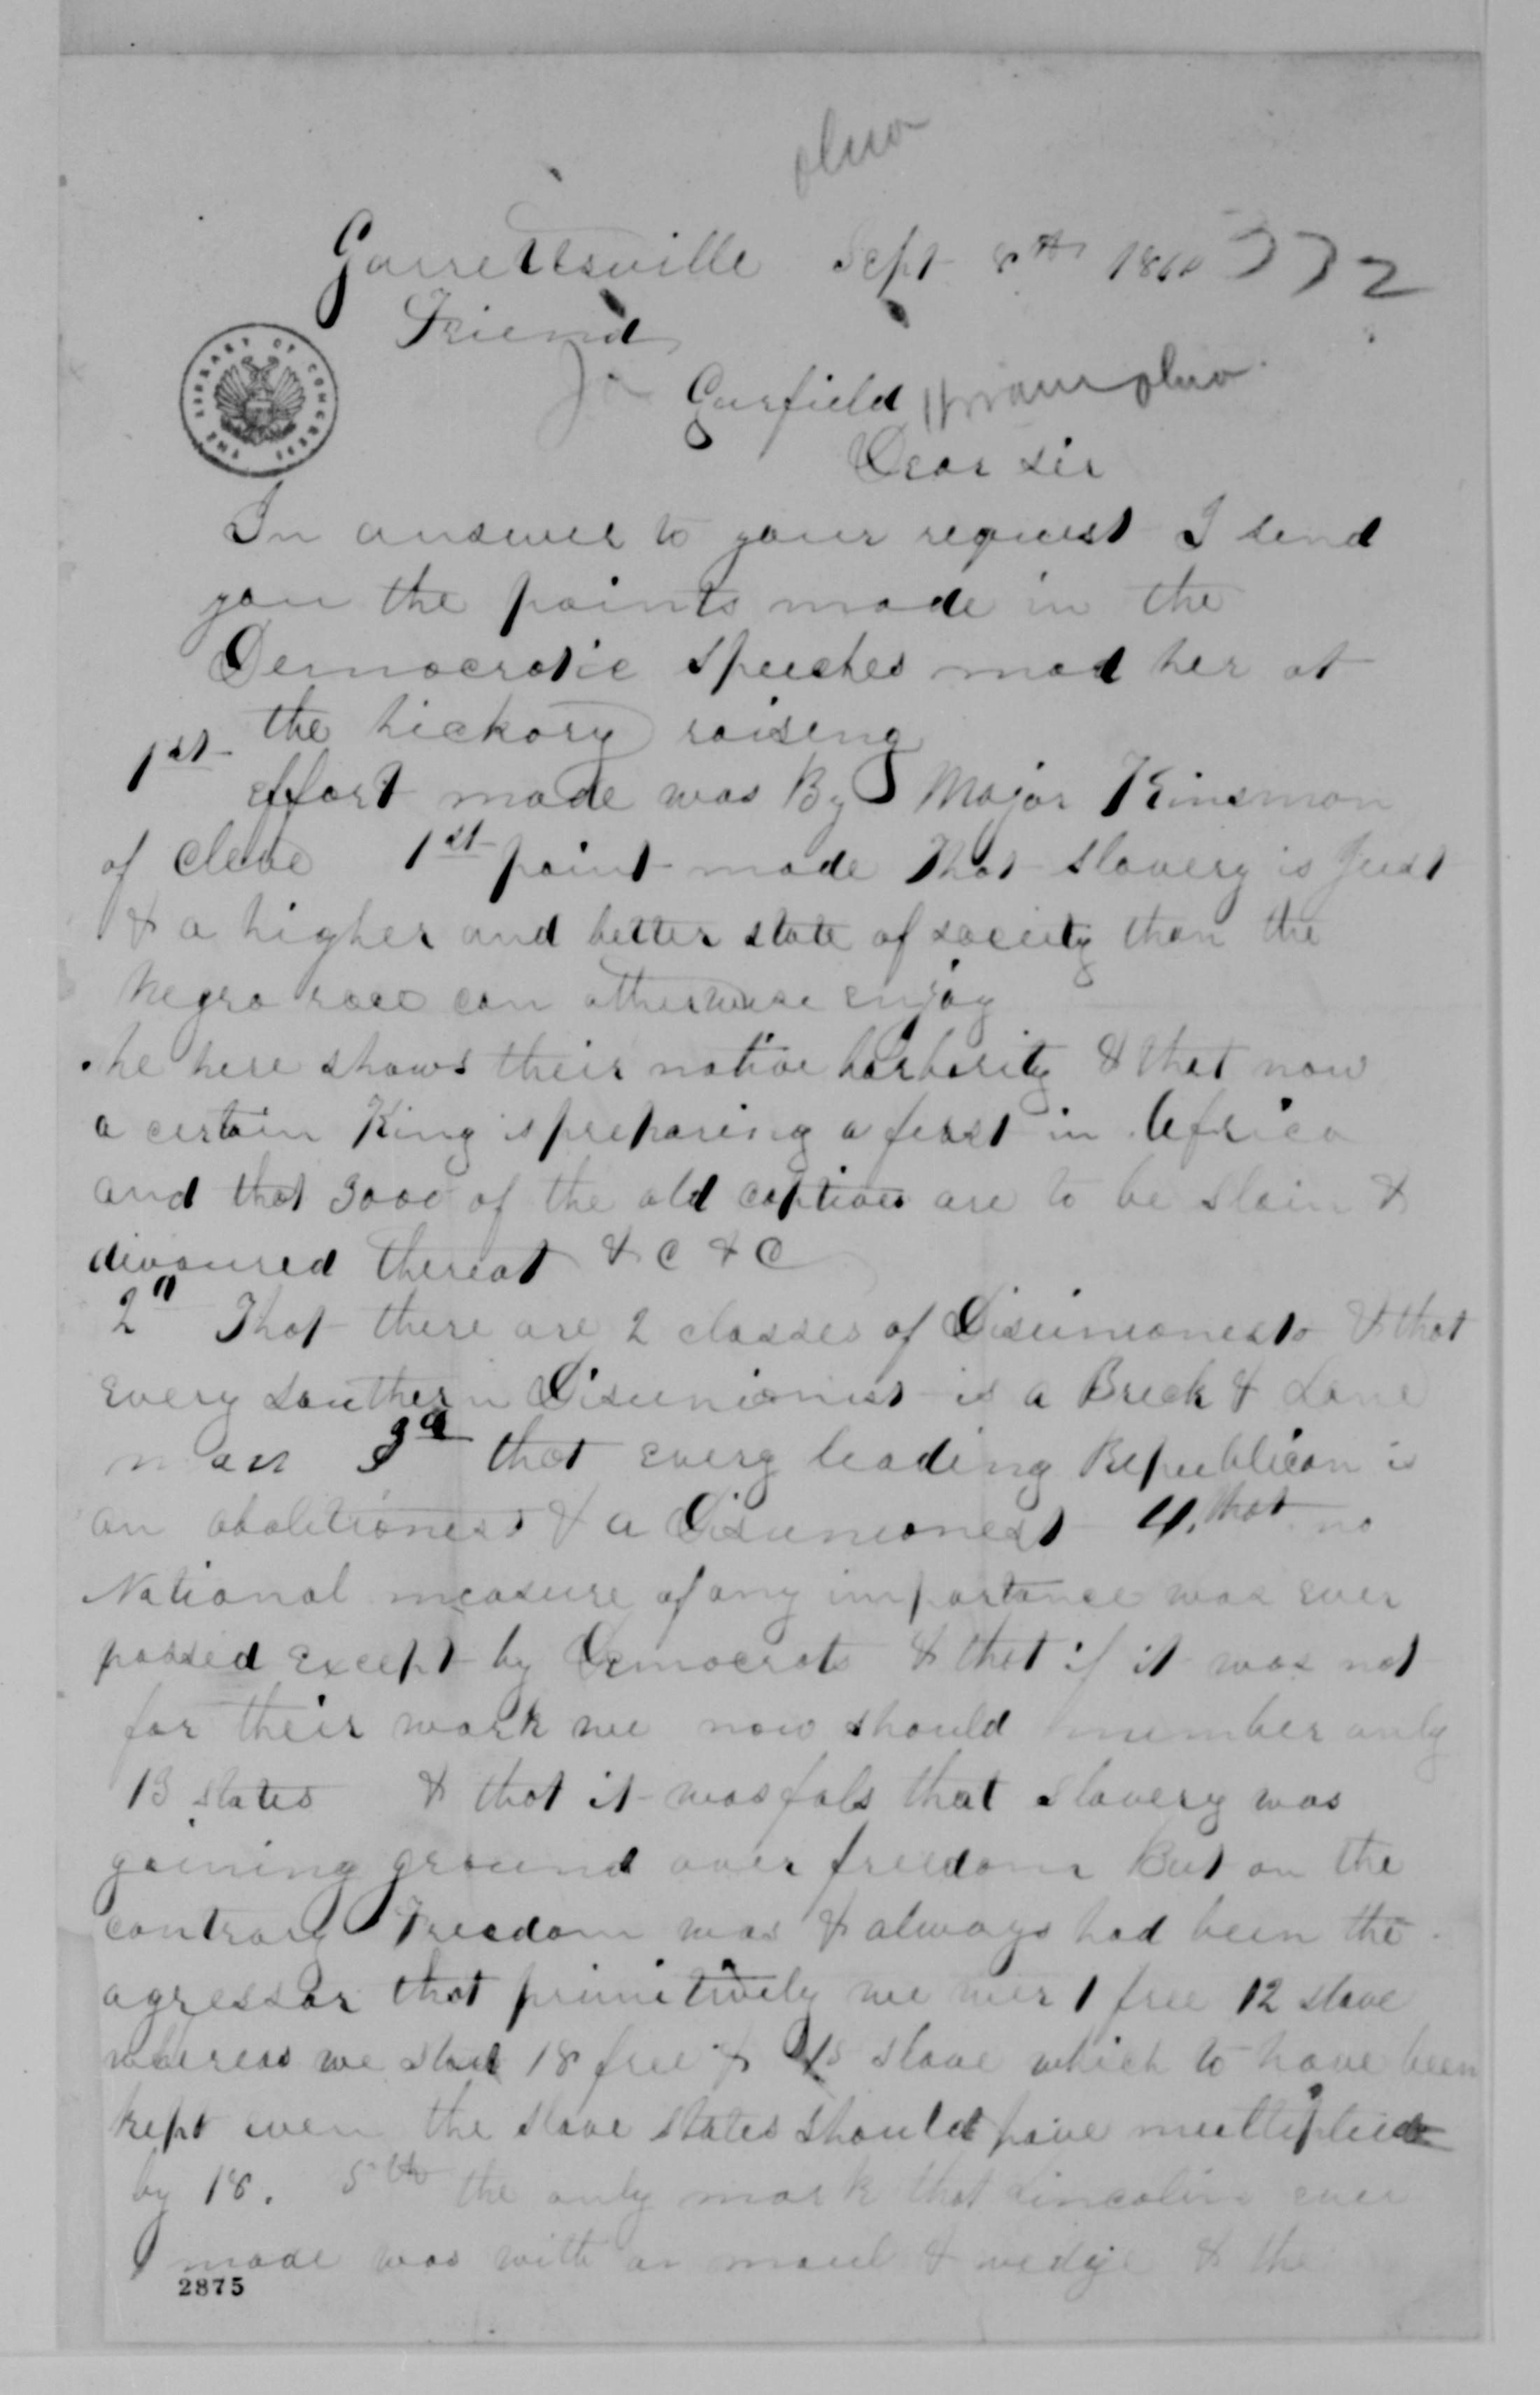 Ohio
Garrettsville Sept 8th 1860 332
Friend
Ja Garfield Hiram Ohio
Dear Sir
THE LIBRARY OF CONGRESS
In answer to your request I send
you the points made in the
Democratic speeches mad her at
the hickory raising
1st effort made was By Major Kinsman
of Cleve 1st point made That slavery is Just
& a higher and better state of society than the
Negro race can otherwise enjoy
he here shows their native barbarity & that now
a certain King is preparing a feast in Africa
and that 3000 of the old captives are to be slain &
devoured thereat & C & C
2n That there are 2 classes of Disunionests & that
every southern Disunionist is a Breck & Lane
man 3d that every leading Republican is
an abolitionest & a Disunionest 4. that no
National measure of any importance was ever
passed except by Democrats & that if it was not
for their work we now should number only
13 states & that it was fals that slavery was
gaining ground over freedom But on the
contrary Freedom was & always had been the
agressor that primitively we wer 1 free 12 slave
whereas we stad 18 free & 15 slave which to have been
kept even the slave states should have multiplied
by 18. 5th the only mark that Lincoln ever
made was with a maul & wedge & the
2875